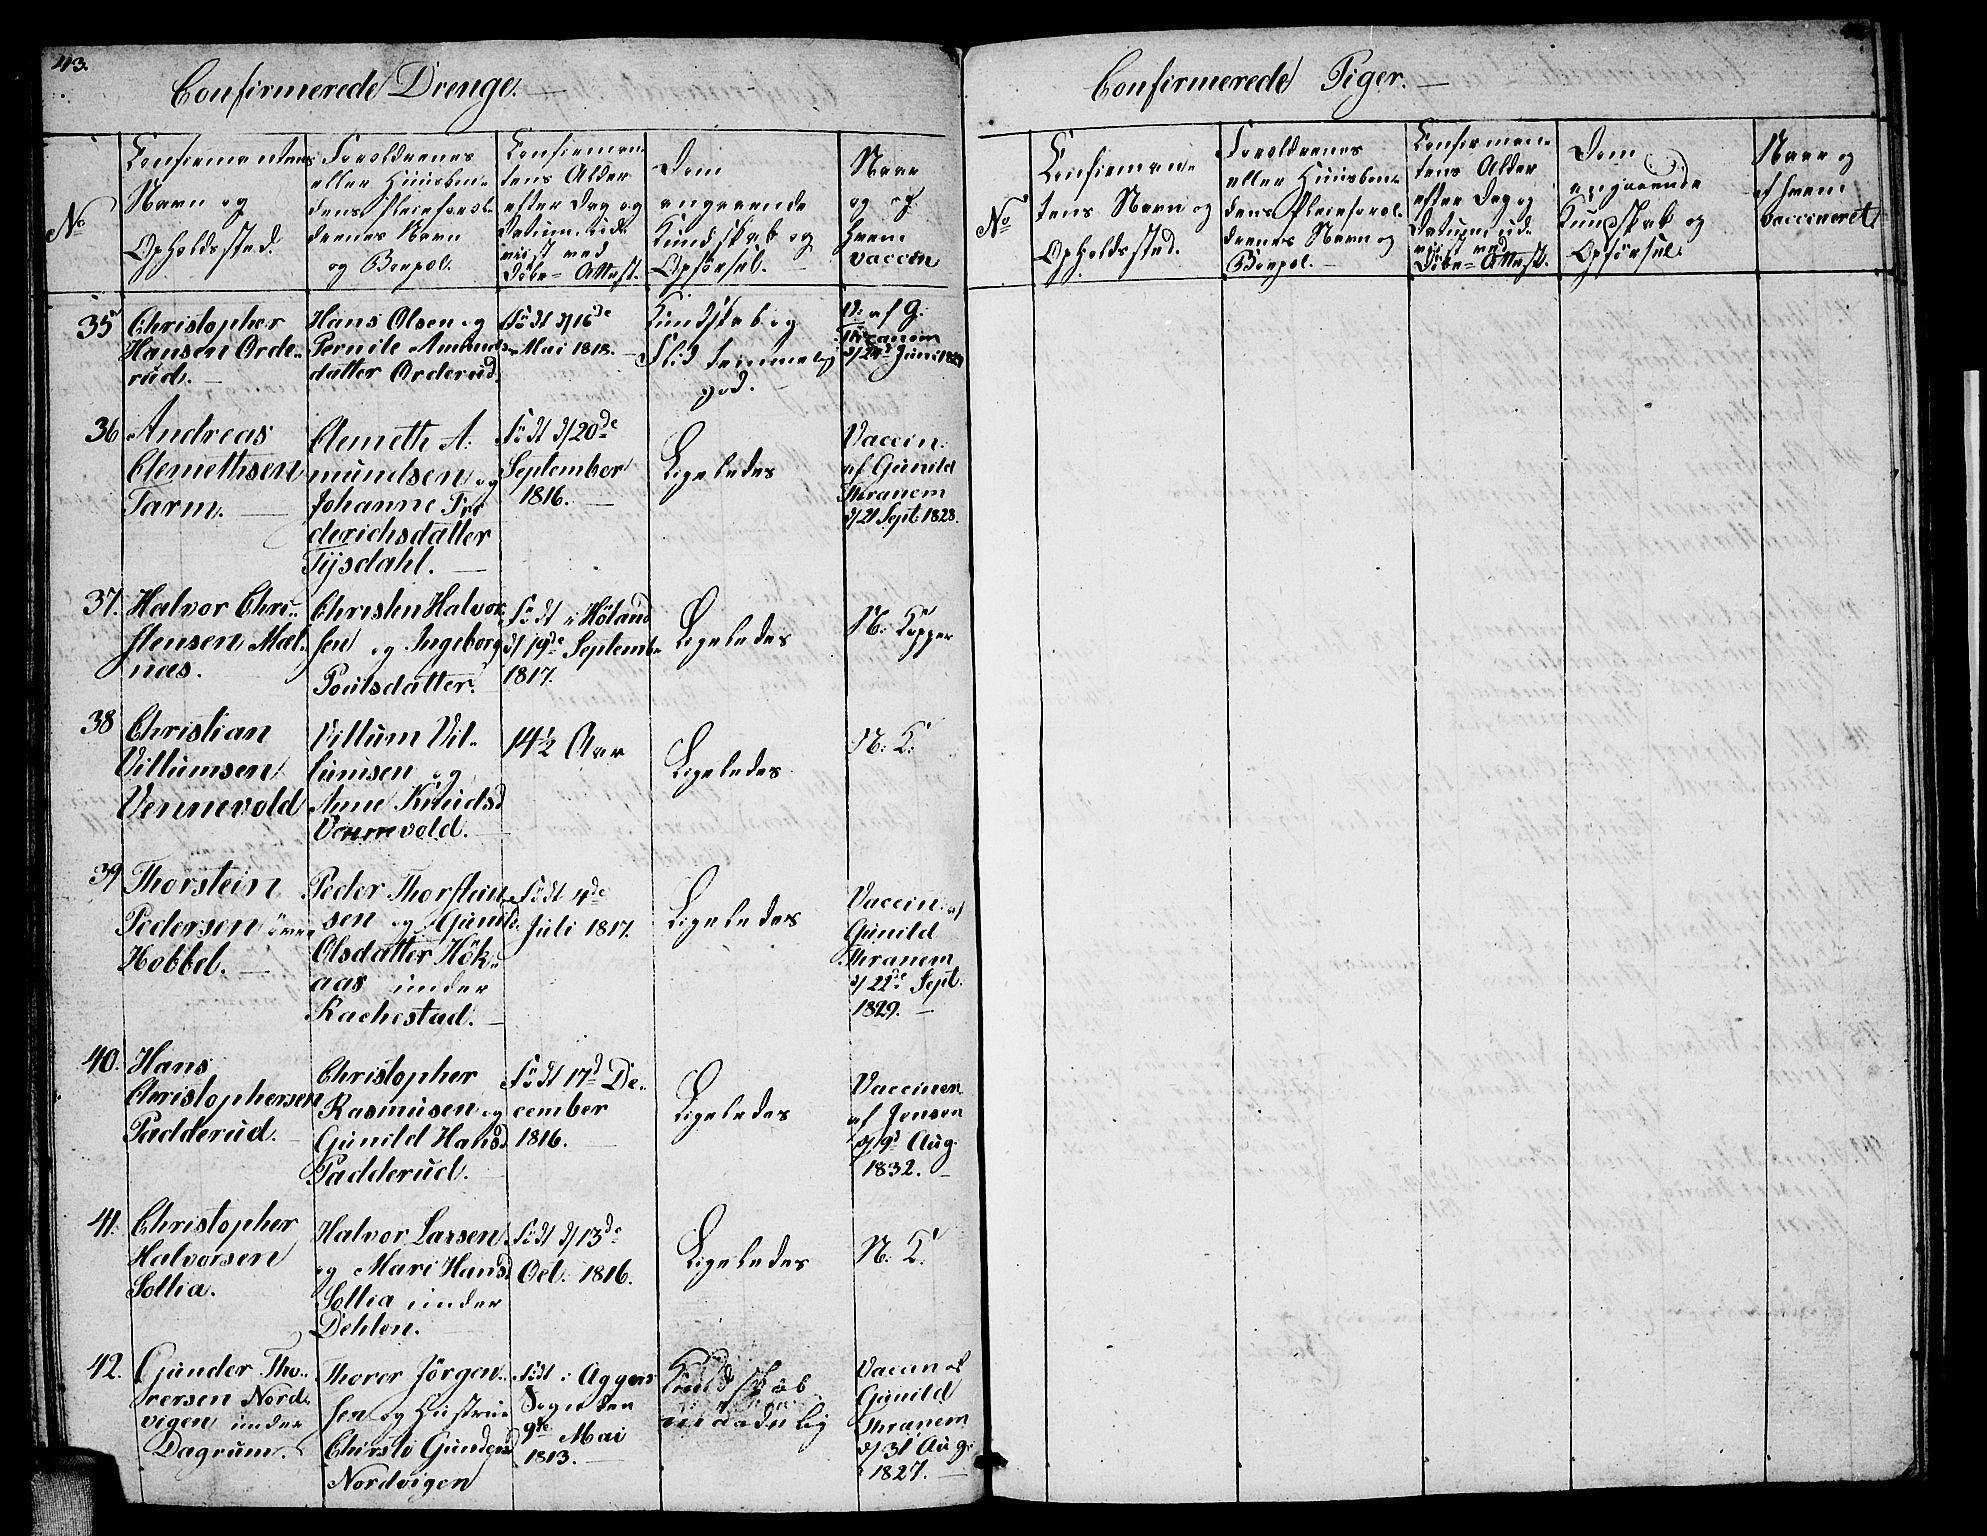 43.
Confirmerede Drenge.
No
Confirmantens
Navn og
Opholdssted.
Foreldrenes
eller Huusbon-
dens Pleieforel-
drenes Navn
og Boepæl.
Confirman-
tens Alder
efter Dag og
Datum, ud-
viist ved
Döbe-Attest.
Dom
angaaende
Kundskab og
Opförsel.
Naar
og af
hvem
vaccin
35
Christopher
Hansen Orde-
rud.
Hans Olsen og
Pernile Amunds-
datter Orderud.
Födt d/16de
Mai 1818.
Kundskab og
Flid temmelig
god.
V: af G:
Thranem
d/24d Juni 18
36
Andreas
Clemethsen
Tarm.
Clemeth A-
mundsen og
Johanne Fre
derichsdatter
Tijsdahl.
Födt d/20de
September
1816.
Ligeledes
Vaccin:
af Gunild
Thranem
d/21 Sept: 1828.
37.
Halvor Chri-
stensen Mæl-
næs.
Christen Halvor-
sen og Ingeborg
Poulsdatter.
Födt i Höland
d/19de Septemb.
1817.
Ligeledes
N: Kopper
38
Christian
Villumsen
Vennevold
Villum Vil-
lumsen og
Anne Knudsd
Vennevold.
14½ Aar
Ligeledes
N: K:
39
Thorstein
Pedersen övre
Hobbel.
Peder Thorstein-
sen og Gunild
Olsdatter Hök-
aas under
Rachestad.
Födt 4de
Juli 1817.
Ligeledes
Vaccin: af
Gunild
Thranem
d/22de Sept.
1829.
40.
Hans
Christophersen
Padderud.
Christopher
Rasmusen og
Gunild Hansd.
Padderud.
Födt 17d De-
cember
1816.
Ligeledes
Vaccinen
af Jensen
d/9d Aug.
1832.
41.
Christopher
Halvorsen
Sollia.
Halvor Larsen
og Mari Hansd
Sollia under
Dehlen.
Födt d/13de
Oct. 1816.
Ligeledes
N: K:
42.
Gunder Tho-
rersen Nord-
vigen under
Dagrum.
Thorer Jörgen-
sen og Hustrue
Chirsti Gundersd
Nordvigen
Födt i Aggers
Sogn den
9de Mai
1813.
Kundskab
maadelig
Vaccin af
Gunild
Thranem
d/31 Aug.
1827.
Confirmerede Piger.
No
Confirman-
tens Navn og
Opholdssted.
Foreldrenes
eller Huusbon-
dens Pleieforel-
drenes Navn og
Boepæl.
Confirman-
tens Alder
efter Dag og
Datum, ud-
viist ved
Döbe-Attest.
Dom
angaaende
Kundskab og
Opförsel.
Naar og
af hvem
vaccineret